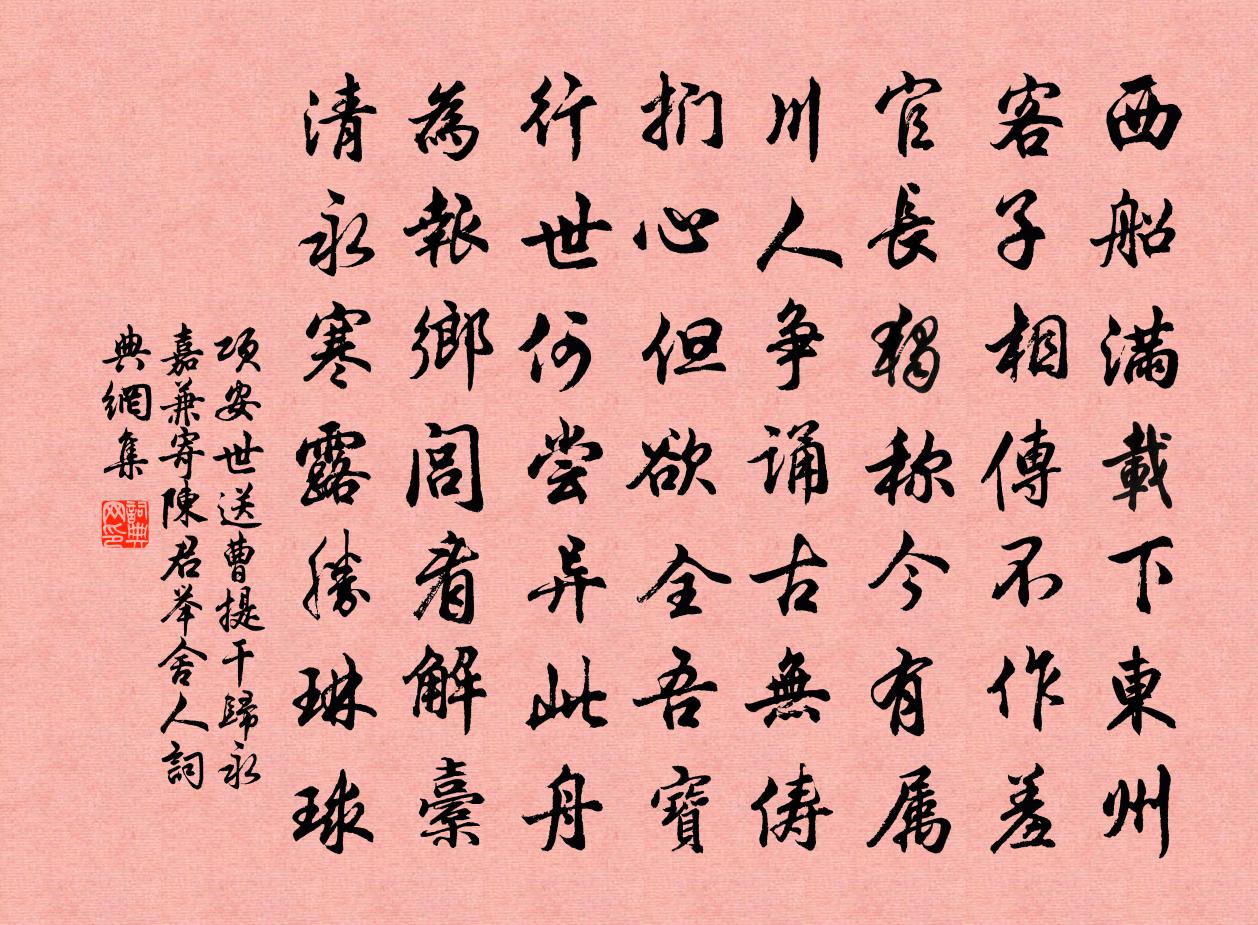 西船滿載下東州
客子相傳不作羞
官長獨称今有属
川人爭誦古無儔
捫心但欲全吾寶
行世何嘗异此舟
為報鄉閭看解橐
清永寒露勝琳球
項安世送曹提干歸永
嘉兼寄陳君举舍人詞
典網集
詞典网印